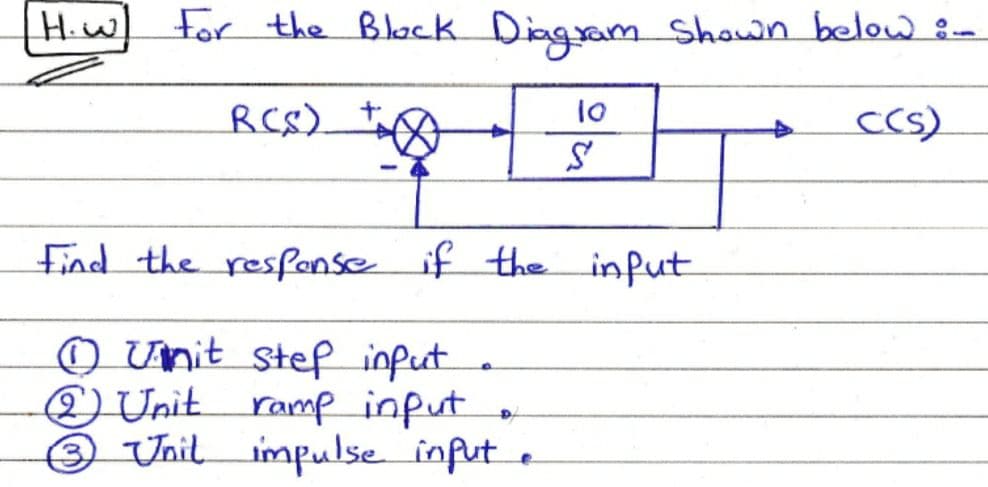 H.w For the Block Diagram Shown below :-
R(S) + 10 C(S)
- S
Find the response if the input
① Unit step input .
② Unit ramp input .
③ Unit impulse input .